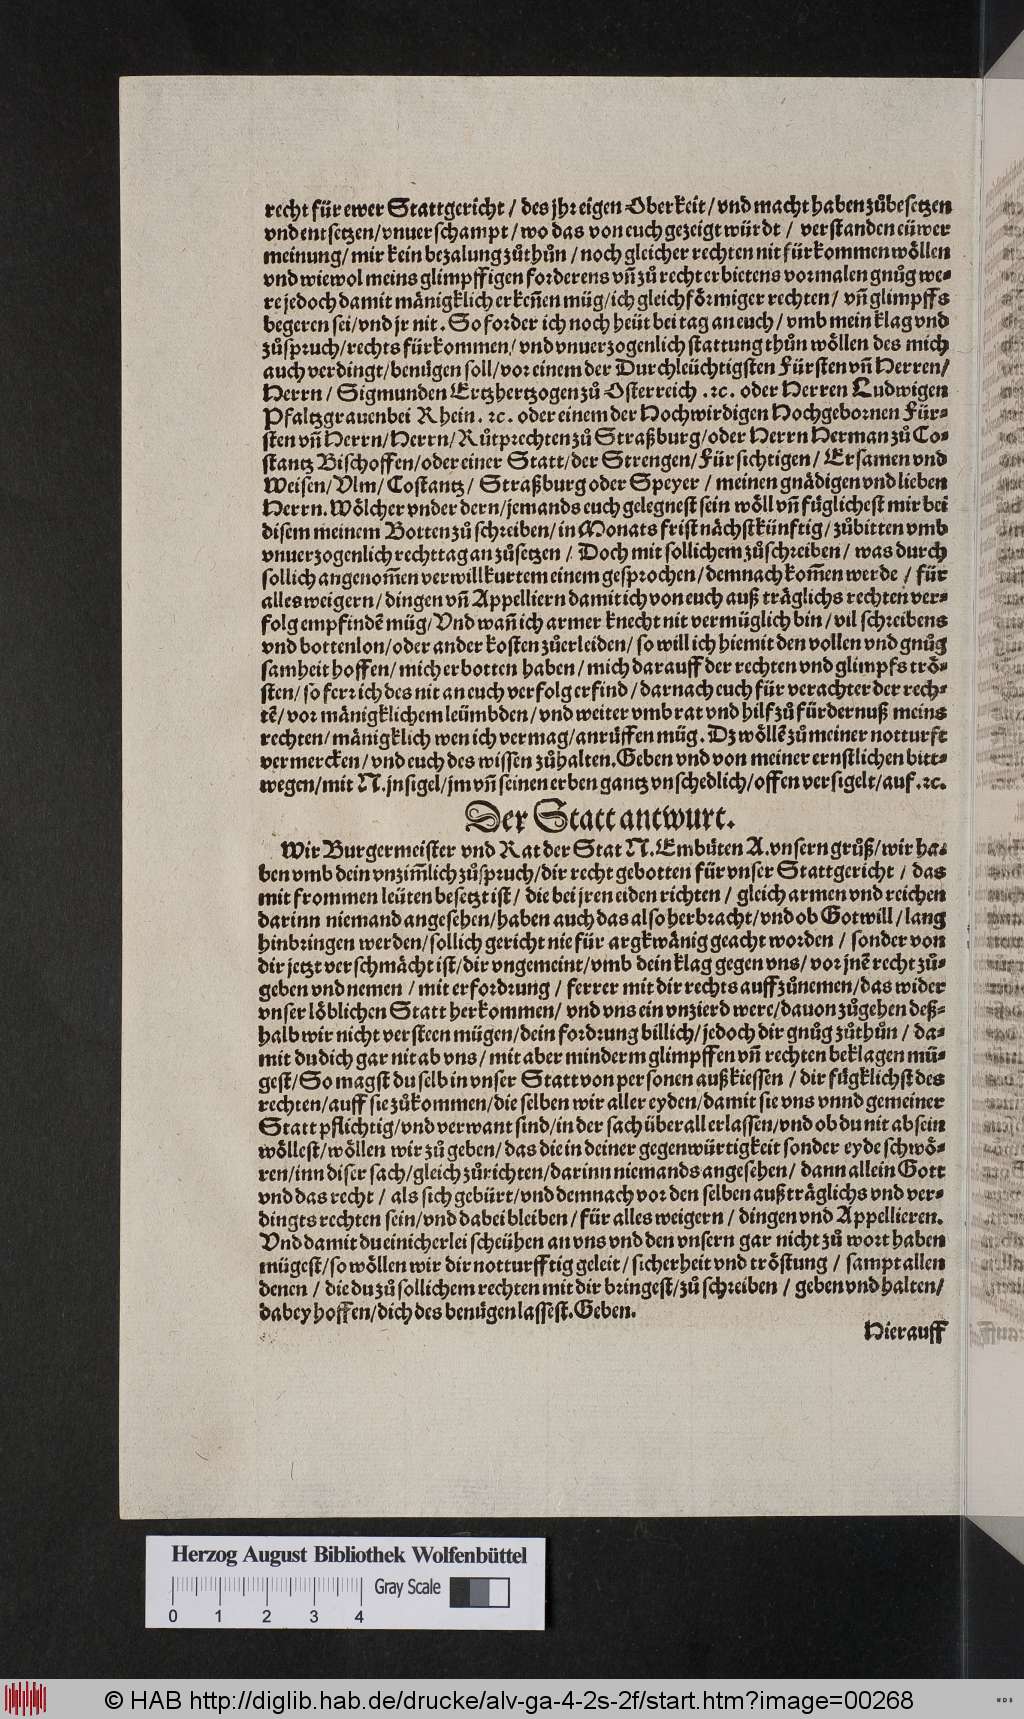 recht für ewer Stattgericht / des jhr eigen Oberkeit / vnd macht haben zůbesetzen
vnd entsetzen / vnuerschampt / wo das von euch gezeigt würdt / verstanden eüwer
meinung / mir kein bezalung zůthůn / noch gleicher rechten nit fürkommen wöllen
vnd wiewol meins glimpffigen forderens vñ zů recht erbietens vormalen gnůg we-
re jedoch damit mänigklich erkeñen müg / ich gleichförmiger rechten / vñ glimpffs
begeren sei / vnd jr nit. So forder ich noch heüt bei tag an euch / vmb mein klag vnd
zůspruch / rechts fürkommen / vnd vnuerzogenlich stattung thůn wöllen des mich
auch verdingt / benügen soll / vor einem der Durchleüchtigsten Fürsten vñ Herren /
Herrn / Sigmunden Ertzhertzogen zů Osterreich .ꝛc. oder Herren Ludwigen
Pfaltzgrauen bei Rhein. ꝛc. oder einem der Hochwirdigen Hochgebornen Für-
sten vñ Herrn / Herrn / Růtprechten zů Straßburg / oder Herrn Herman zů Co-
stantz Bischoffen / oder einer Statt / der Strengen / Fürsichtigen / Ersamen vnd
Weisen / Vlm / Costantz / Straßburg oder Speyer / meinen gnädigen vnd lieben
Herrn. Wölcher vnder dern / jemands euch gelegnest sein wöll vñ füglichest mir bei
disem meinem Botten zů schreiben / in Monats frist nächstkünftig / zůbitten vmb
vnuerzogenlich rechttag an zůsetzen / Doch mit sollichem zůschreiben / was durch
sollich angenom̃en verwillkurtem einem gesprochen / demnach kom̃en werde / für
alles weigern / dingen vñ Appelliern damit ich von euch auß träglichs rechten ver-
folg empfindẽ müg / Vnd wañ ich armer knecht nit vermüglich bin / vil schreibens
vnd bottenlon / oder ander kosten zůerleiden / so will ich hiemit den vollen vnd gnůg
samheit hoffen / mich erbotten haben / mich darauff der rechten vnd glimpfs trö-
sten / so ferr ich des nit an euch verfolg erfind / darnach euch für verachter der rech-
tẽ / vor mänigklichem leümbden / vnd weiter vmb rat vnd hilf zů fürdernuß meins
rechten / mänigklich wen ich vermag / anrůffen müg. Dz wöllẽ zů meiner notturft
vermercken / vnd euch des wissen zůhalten. Geben vnd von meiner ernstlichen bitt-
wegen / mit N. jnsigel / jm vñ seinen erben gantz vnschedlich / offen versigelt / auf .ꝛc.
Der Statt antwurt.
Wir Burgermeister vnd Rat der Stat N. Embüten A. vnsern grůß / wir ha-
ben vmb dein vnzim̃lich zůspruch / dir recht gebotten für vnser Stattgericht / das
mit frommen leüten besetzt ist / die bei jren eiden richten / gleich armen vnd reichen
darinn niemand angesehen / haben auch das also herbracht / vnd ob Got will / lang
hinbringen werden / sollich gericht nie für argkwänig geacht worden / sonder von
dir jetzt verschmächt ist / dir vngemeint / vmb dein klag gegen vns / vor jnẽ recht zů-
geben vnd nemen / mit erfordrung / ferrer mit dir rechts auff zůnemen / das wider
vnser löblichen Statt herkommen / vnd vns ein vnzierd were / dauon zůgehen deß-
halb wir nicht versteen mügen / dein fordrung billich / jedoch dir gnůg zůthůn / da-
mit du dich gar nit ab vns / mit aber minderm glimpffen vñ rechten beklagen mü-
gest / So magst du selb in vnser Statt von personen außkiessen / dir fügklichst des
rechten / auff sie zůkommen / die selben wir aller eyden / damit sie vns vnnd gemeiner
Statt pflichtig / vnd verwant sind / in der sach überall erlassen / vnd ob du nit absein
wöllest / wöllen wir zů geben / das die in deiner gegenwürtigkeit sonder eyde schwö-
ren / inn diser sach / gleich zůrichten / darinn niemands angesehen / dann allein Gott
vnd das recht / als sich gebürt / vnd demnach vor den selben außträglichs vnd ver-
dingts rechten sein / vnd dabei bleiben / für alles weigern / dingen vnd Appellieren.
Vnd damit du einicherlei scheühen an vns vnd den vnsern gar nicht zů wort haben
mügest / so wöllen wir dir notturfftig geleit / sicherheit vnd tröstung / sampt allen
denen / die du zů sollichem rechten mit dir bringest / zů schreiben / geben vnd halten /
dabey hoffen / dich des benügen lassest. Geben.
Hierauff
Herzog August Bibliothek Wolfenbüttel
Gray Scale
0 1 2 3 4
© HAB http://diglib.hab.de/drucke/alv-ga-4-2s-2f/start.htm?image=00268